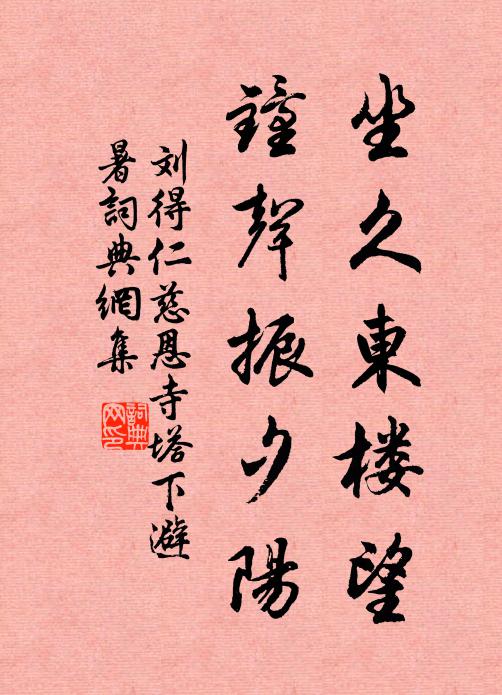 坐久东楼望
鐘聲振夕陽
刘得仁慈恩寺塔下避
暑詞典網集
詞典
网印